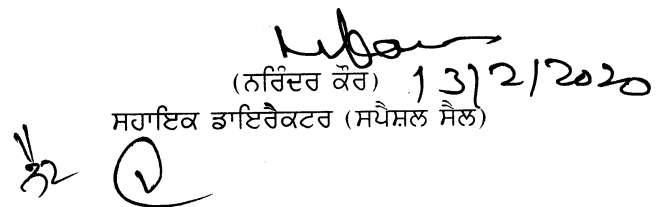 (ਨਰਿੰਦਰ ਕੌਰ) 13/2/2020
ਸਹਾਇਕ ਡਾਇਰੈਕਟਰ (ਸਪੈਸ਼ਲ ਸੈਲ)